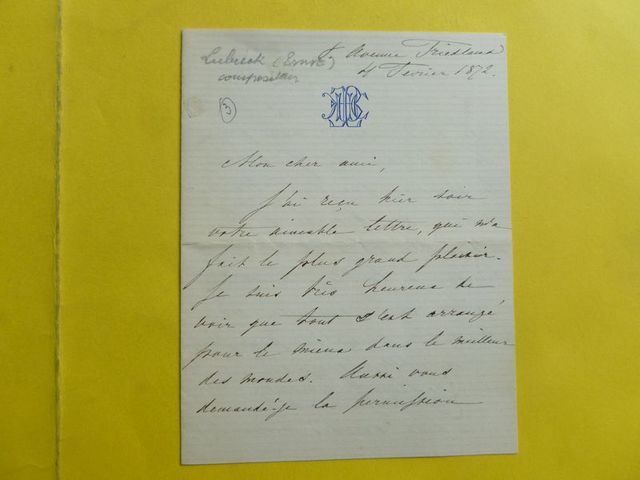 Lubeck (Ernst)
compositeur
Avenue Friedland
4 Fevrier 1872.
3
Mon cher ami,
J'ai reçu hier soir
votre aimable lettre, qui m'a
fait le plus grand plaisir.
Je suis très heureux de
voir que tout s'est arrangé
pour le mieux dans le meilleur
des mondes. Aussi vous
demandé-je la permission